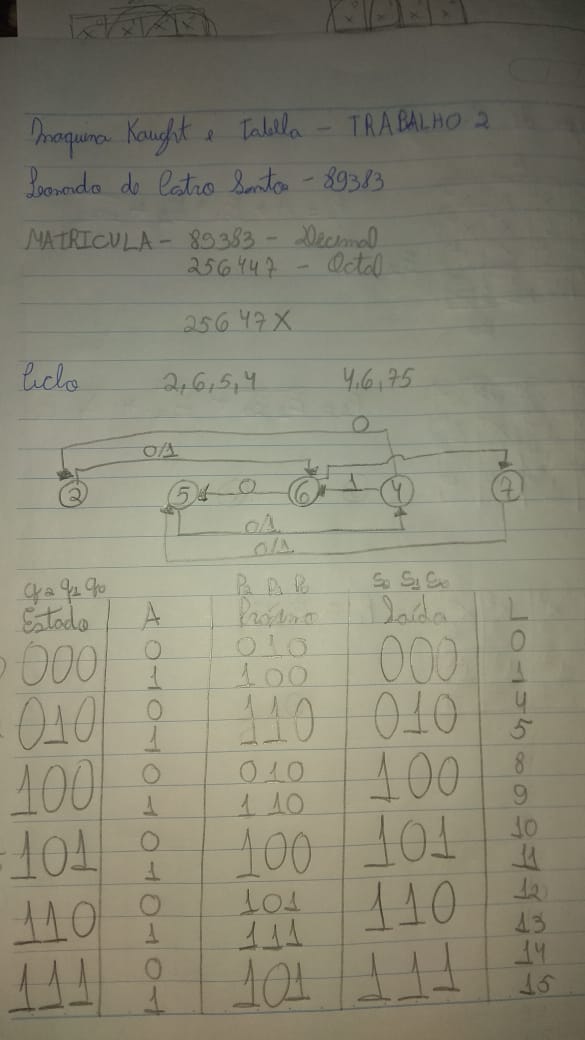 Maquina Kaught e Tabella - TRABALHO 2
Leonardo de Castro Santos - 89383
MATRICULA - 89383 - Decimal
256447 - Octal
25647X
Ciclo 2,6,5,4 4,6,75
0
0/1
2 5 0 6 1 4 7
0/1
0/1
q2 q1 q0 P2 P1 P0 S0 S1 S0
Estado A Próximo Saída L
000 0 010 000 0
1 100 1
010 0 110 010 4
1 5
100 0 010 100 8
1 110 9
101 0 100 101 10
1 11
110 0 101 110 12
1 111 13
111 0 101 111 14
1 15